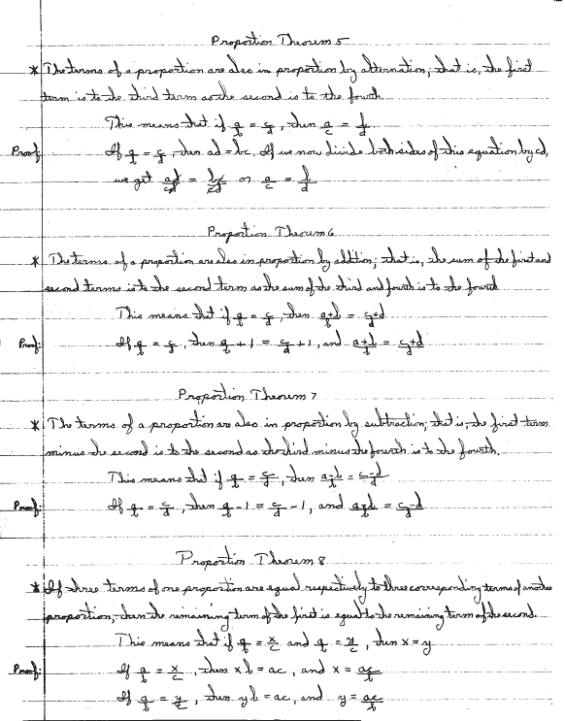 Proportion Theorem 5
* The terms of a proportion are also in proportion by alternation; that is, the first
term is to the third term as the second is to the fourth.
This means that if a/b = c/d, then a/c = b/d
Proof: If a/b = c/d, then ad = bc. If we now divide both sides of this equation by cd,
we get ad/cd = bc/cd or a/c = b/d
Proportion Theorem 6
* The terms of a proportion are also in proportion by addition; that is, the sum of the first and
second terms is to the second term as the sum of the third and fourth is to the fourth
This means that if a/b = c/d, then a+b/b = c+d/d
Proof: If a/b = c/d, then a/b + 1 = c/d + 1, and a+b/b = c+d/d
Proportion Theorem 7
* The terms of a proportion are also in proportion by subtraction; that is, the first term
minus the second is to the second as the third minus the fourth is to the fourth.
This means that if a/b = c/d, then a-b/b = c-d/d
Proof: If a/b = c/d, then a/b - 1 = c/d - 1, and a-b/b = c-d/d
Proportion Theorem 8
* If three terms of one proportion are equal respectively to three corresponding terms of another
proportion, then the remaining term of the first is equal to the remaining term of the second.
This means that if a/b = x/c and a/b = y/c, then x = y
Proof: If a/b = x/c, then xb = ac, and x = ac/b
If a/b = y/c, then yb = ac, and y = ac/b